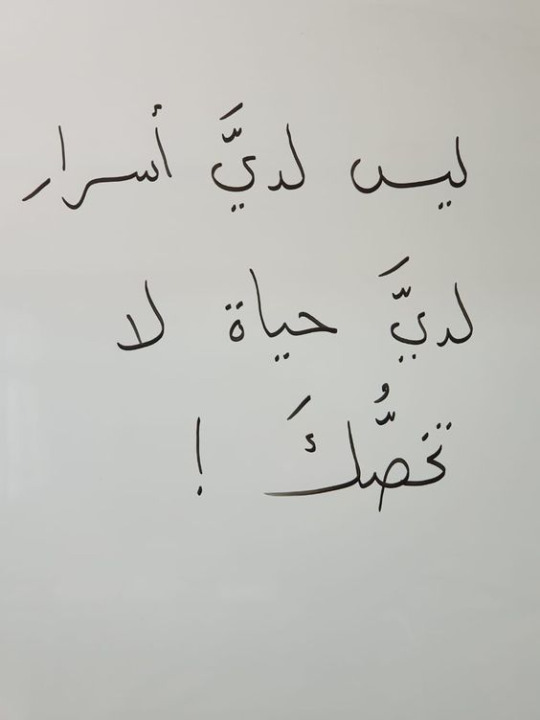 ليس لديَّ أسرار
لديَّ حياة لا
تخصُّكَ !